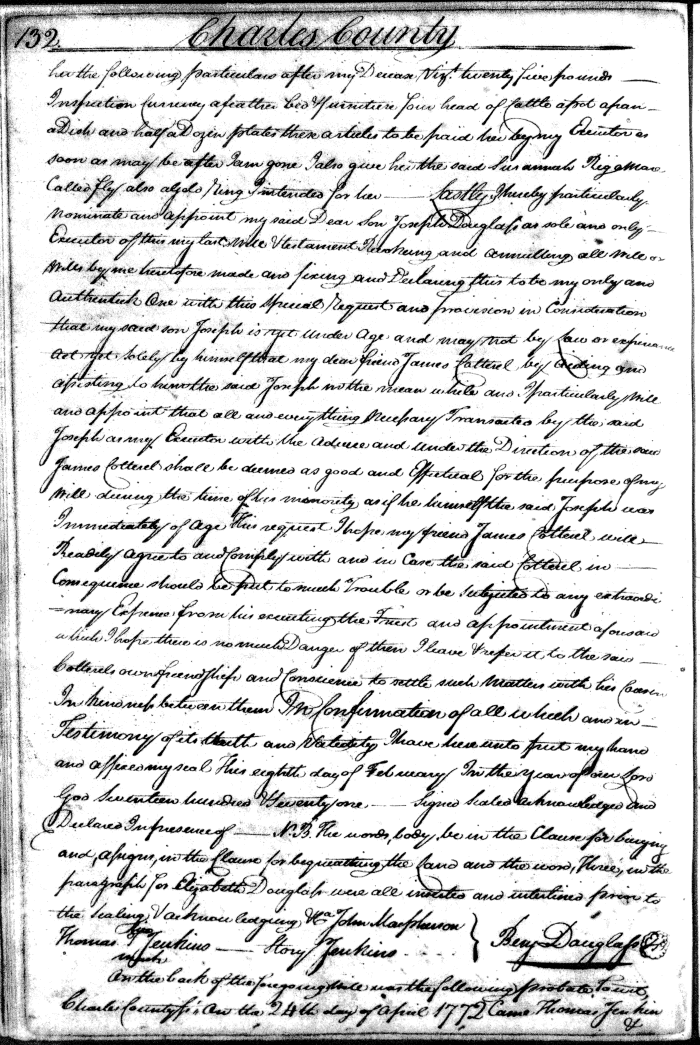 132 Charles County
her the following particulars after my Decease, Vizt. twenty five pounds
Inspection Currency a feather bed & furniture four head of Cattle a pot a pan
a Dish and half a Dozen plates these articles to be paid her by my Executor as
soon as may be after I am gone I also give her the said Susannah Rigg Mare
Called Fly also a gold Ring I intended for her — Lastly, I hereby particularly
Nominate and appoint my said Dear Son Joseph Douglass as sole and only
Executor of this my last Will & Testament Revoking and annulling all Will or
Wills by me heretofore made and fixing and Declaring this to be my only and
Authentick One with this Special Request and provision in Consideration
that my said son Joseph is yet under Age and may not by Law or experience
Act yet solely by himself that my dear friend James Cotterel by Aiding and
assisting to him the said Joseph in the mean while and I particularly Will
and appoint that all and everything Necessary Transacted by the said
Joseph as my Executor with the Advice and under the Direction of the said
James Cotterel shall be deemed as good and Effectual for the purpose of my
Will during the time of his minority as if he himself the said Joseph was
Immediately of Age This request I hope my friend James Cotterel will
Readily Agree to and Comply with and in Case the said Cotterel in
Consequence should be put to much Trouble or be Subjected to any extraordi
=nary Expence from his executing the Trust and appointment aforesaid
which I hope there is no much Danger of then I leave & refer it to the said
Cotterels own friendship and Conscience to settle such Matters with his Cousin
In kindness between them In Confirmation of all which and in
Testimony of its truth and Validity I have here unto put my hand
and affixed my seal This eighth day of February In the year of our Lord
God Seventeen hundred & Seventy one — Signed Sealed acknowledged and
Declared In presence of — N.B. The words, body, be in the Clause for burying
and, assigns, in the Clause for bequeathing the Land and the word, Three, in the
paragraph for Elizabeth Douglass were all inserted and interlined prior to
the Sealing & acknowledging John Macpherson
Thomas Jenkins — Story Jenkins } Benj. Douglass
mark
On the back of the foregoing Will was the following probate To wit
Charles County ss. On the 24th day of April 1772 Came Thomas Jenkin
&